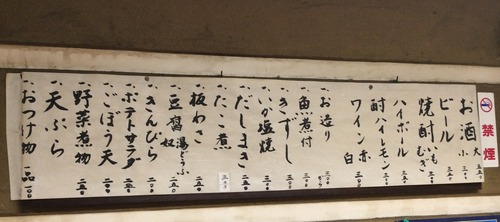 禁煙
お酒 大 小
ビール
焼酎 いも むぎ
ハイボール
酎ハイレモン
ワイン 赤 白
一、お造り
一、魚煮付
一、きずし
一、いか塩焼
一、だしまき
一、たこ煮
一、板わさ
一、豆腐 湯どうふ 奴
一、きんぴら
一、ポテトサラダ
一、ごぼう天
一、野菜煮物
一、天ぷら
一、おつけ物 一品